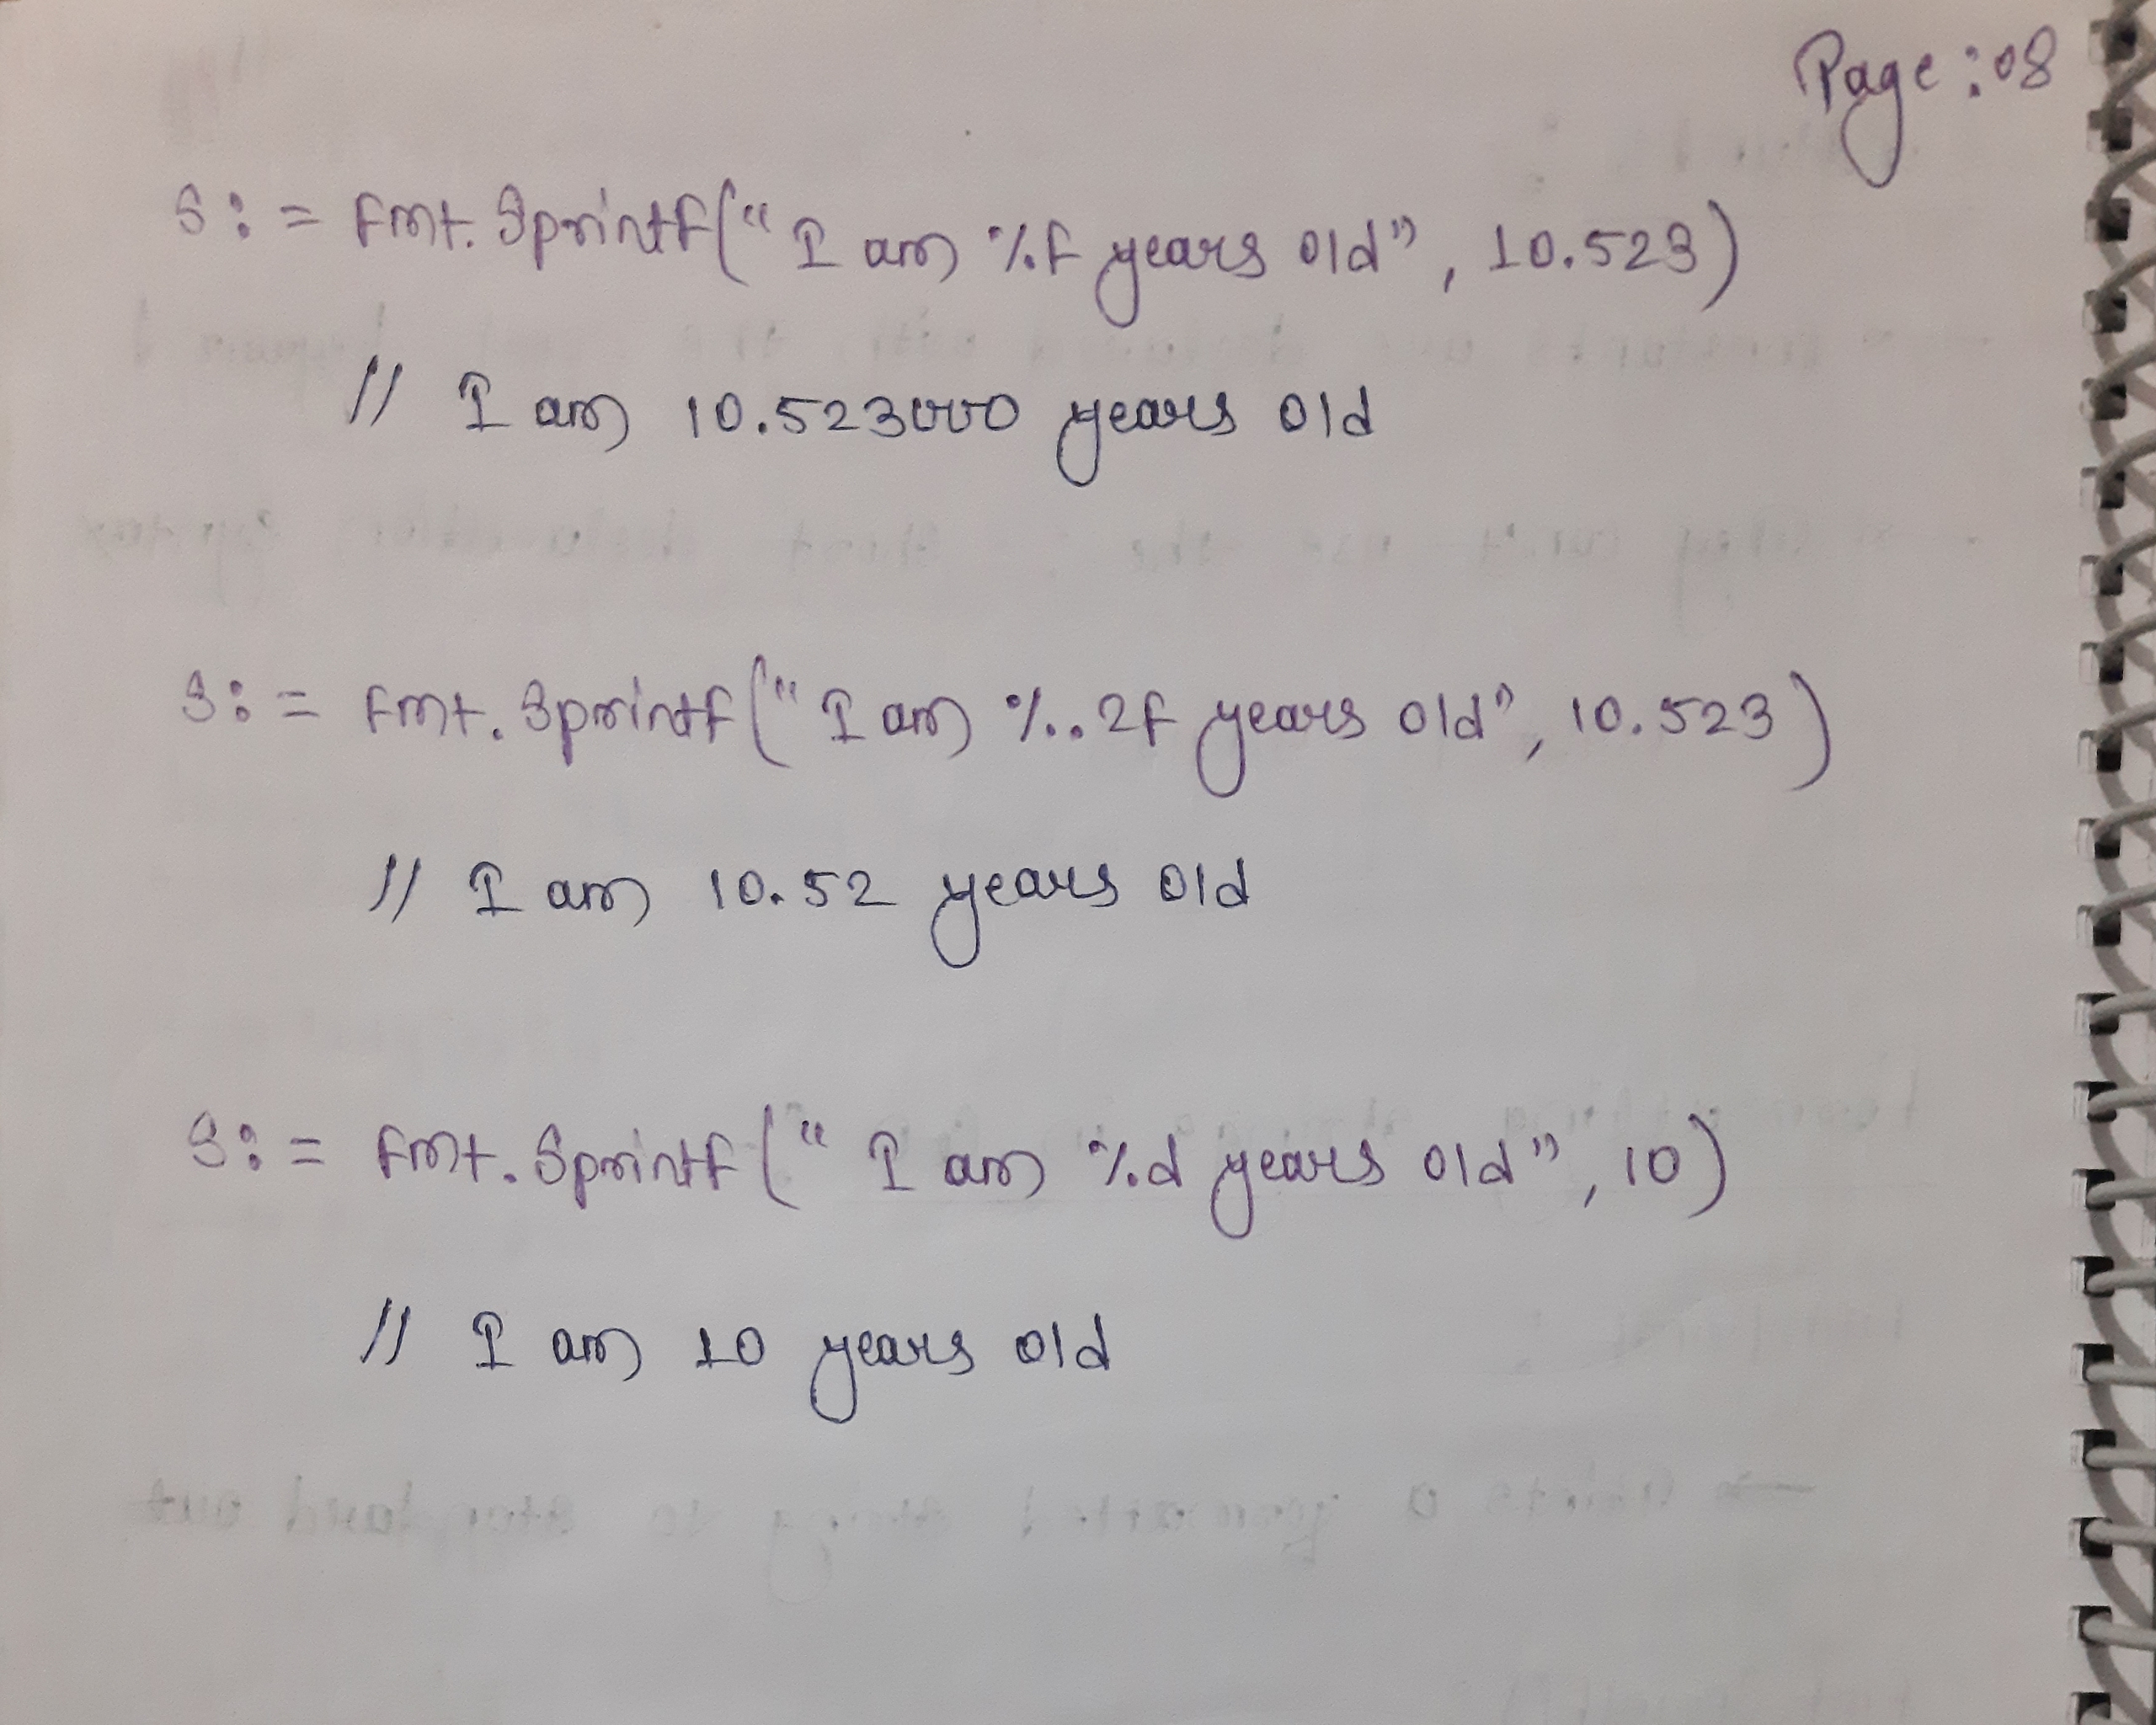 Page:08
s:= fmt.Sprintf(“I am %f years old”, 10.523)
// I am 10.523000 years old
s:= fmt.Sprintf(“I am %.2f years old”, 10.523)
// I am 10.52 years old
s:= fmt.Sprintf(“I am %d years old”, 10)
// I am 10 years old